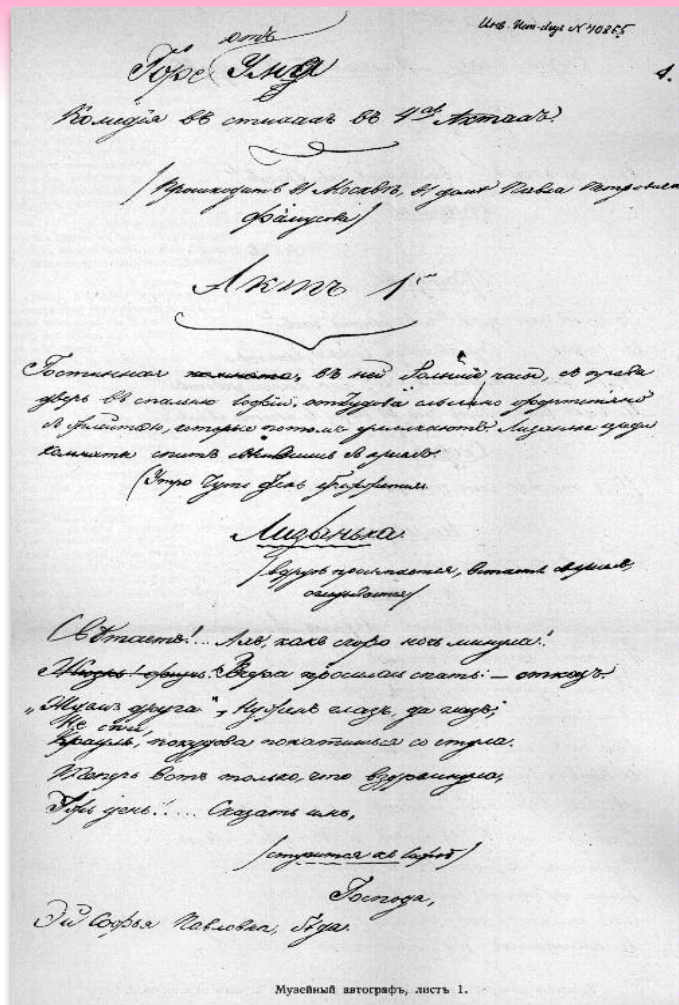 Инв. Ист. Муз № 40255
отъ
Горе Ума
1.
Комедія въ стихахъ въ 4хъ Актахъ.
/Происходитъ въ Москвѣ, въ домѣ Павла Петровича
Фамусова/
Актъ 1й
Гостинная комната, въ ней большіе часы, съ права
дверь въ спальню Софіи, откудова слышно фортопіяно
съ флейтою, которые потомъ умолкаютъ. Лизанька среди
комнаты спитъ свѣсившись съ креселъ.
(Утро чуть день брезжится.
Лизанька.
/вдругъ просыпается, встаетъ съ креселъ,
оглядывается/
Свѣтаетъ!... Ахъ, какъ скоро ночь минула!
Вчера просилась спать: – отказъ.
„Ждемъ друга“, Нуженъ глазъ, да глазъ;
Не спи, покудова покатишься со стула.
Теперь вотъ только, что вздремнула,
Ужъ день!.... Сказать имъ,
/стучится къ Софіѣ/
Господа,
Эй Софья Павловна, бѣда.
Музейный автографъ, листъ 1.